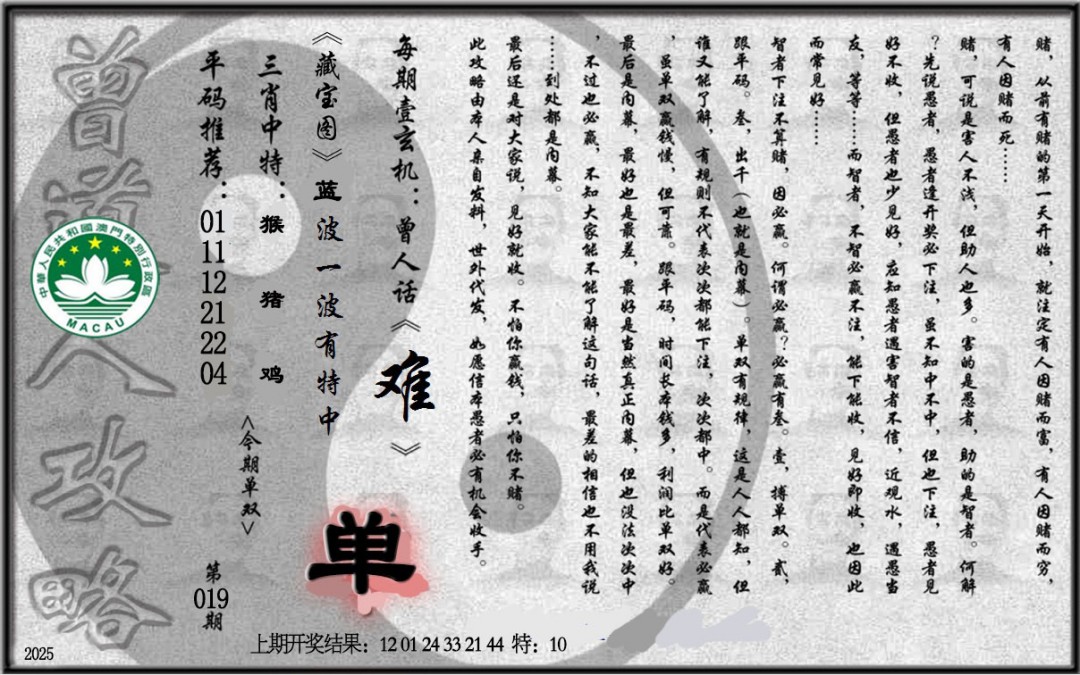 赌，从前有赌的第一天开始，就注定有人因赌而富，有人因赌而穷，
有人因赌而死……
赌，可说是害人不浅，但助人也多。害的是愚者，助的是智者。何解
？先说愚者，愚者逢开奖必下注，虽不知中不中，但也下注，愚者见
好不收，但愚者也少见好，应知愚者遇害智者不信，近观水，遇愚当
友，等等……而智者，不智必赢不注，能下能收，见好即收，也因此
而常见好……
智者下注不算赌，因必赢。何谓必赢？必赢有叁。壹，搏单双。贰，
跟平码。叁，出千（也就是内幕）。单双有规律，这是人人都知，但
谁又能了解，有规则不代表次次都能下注，次次都中。而是代表必赢
，虽单双赢钱慢，但可靠。跟平码，时间长本钱多，利润比单双好。
最后是内幕，最好也是最差，最好是当然真正内幕，但也没法次次中
，不过也必赢，不知大家能不能了解这句话，最差的相信也不用我说
……到处都是内幕。
最后还是对大家说，见好就收。不怕你赢钱，只怕你不赌。
此攻略由本人亲自发料，世外代发，如愿信本愚者必有机会收手。
每期壹玄机：曾人话《难》
《藏宝图》蓝波一波有特中
三肖中特：猴 猪 鸡
平码推荐：01 11 12 21 22 04
<今期单双>
单
第019期
曾道人攻略
中華人民共和國澳門特別行政區
MACAU
上期开奖结果：12 01 24 33 21 44 特：10
2025